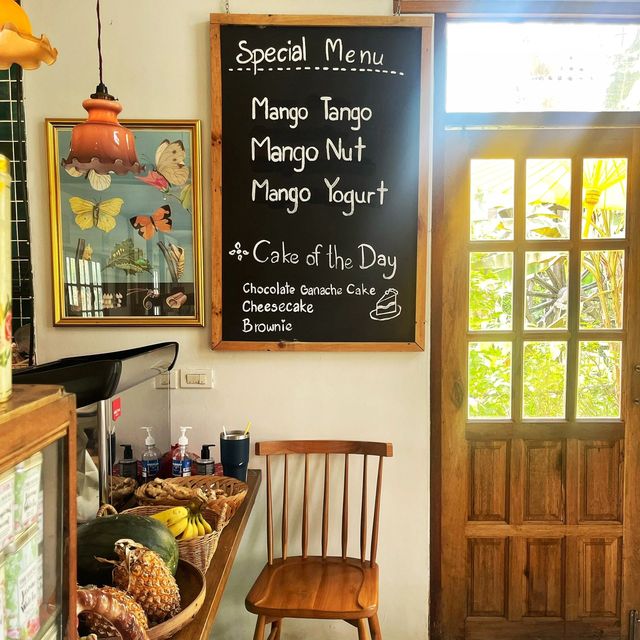 Special Menu
Mango Tango
Mango Nut
Mango Yogurt
Cake of the Day
Chocolate Ganache Cake
Cheesecake
Brownie